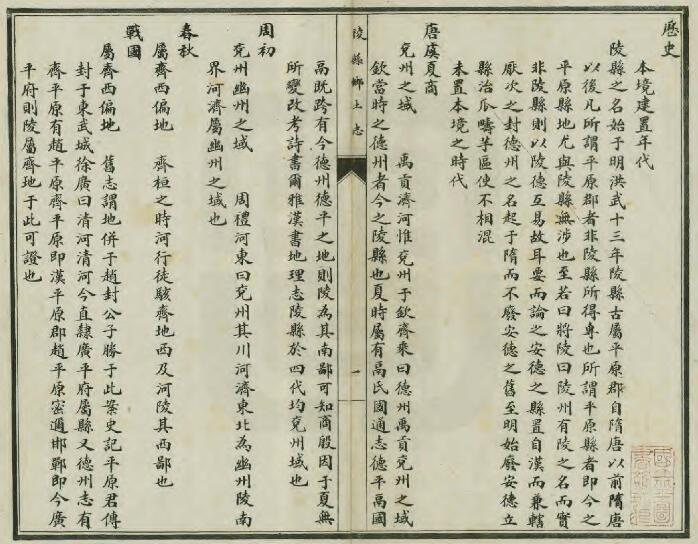 歷史
本境建置年代
陵縣之名始于明洪武十三年陵縣古屬平原郡自隋唐以前隋唐
以後凡所謂平原郡者非陵縣所得專也所謂平原縣者即今之
平原縣地尤與陵縣無涉也至若曰將陵曰陵州有陵之名而實
非陵縣則以陵德互易故耳要而論之安德之縣置自漢而兼轄
厭次之封德州之名起于隋而不廢安德之舊至明始廢安德立
縣治瓜疇芋區使不相混
未置本境之時代
唐虞夏商
兗州之域 禹貢濟河惟兗州于欽齊乘曰德州禹貢兗州之域
欽當時之德州者今之陵縣也夏時屬有鬲氏國通志德平鬲國
陵縣鄉土志
一
鬲既跨有今德州德平之地則陵為其南鄙可知商殷因于夏無
所變改考詩書爾雅漢書地理志陵縣於四代均兗州域也
周初
兗州幽州之域 周禮河東曰兗州其川河濟東北為幽州陵南
界河濟屬幽州之域也
春秋
屬齊西偏地 齊桓之時河行徒駭齊地西及河陵其西鄙也
戰國
屬齊西偏地 舊志謂地併于趙封公子勝于此案史記平原君傳
封于東武城徐廣曰清河清河今直隸廣平府屬縣又德州志有
齊平原有趙平原齊平原即漢平原郡趙平原密邇邯鄲即今廣
平府則陵屬齊地于此可證也